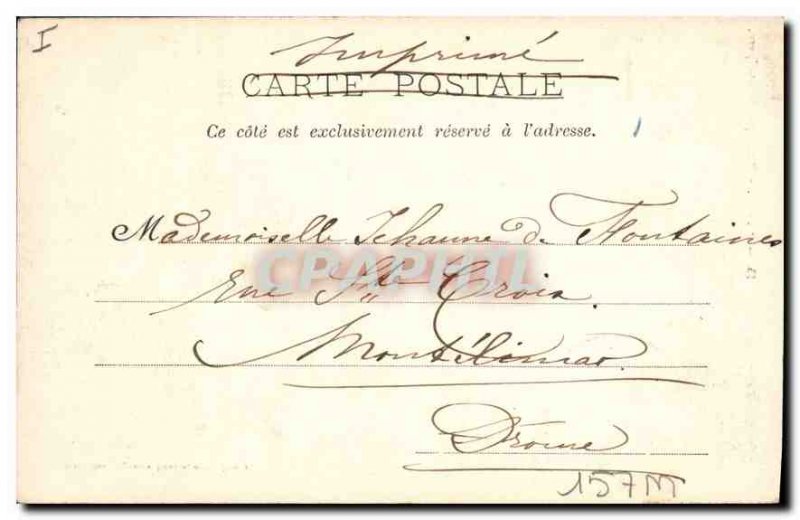 I
Imprimé
CARTE POSTALE
Ce côté est exclusivement réservé à l'adresse.
Mademoiselle Jehanne de Fontaines
CPAPHIL
Rue Ste Croix.
Montélimar
Drôme
157M